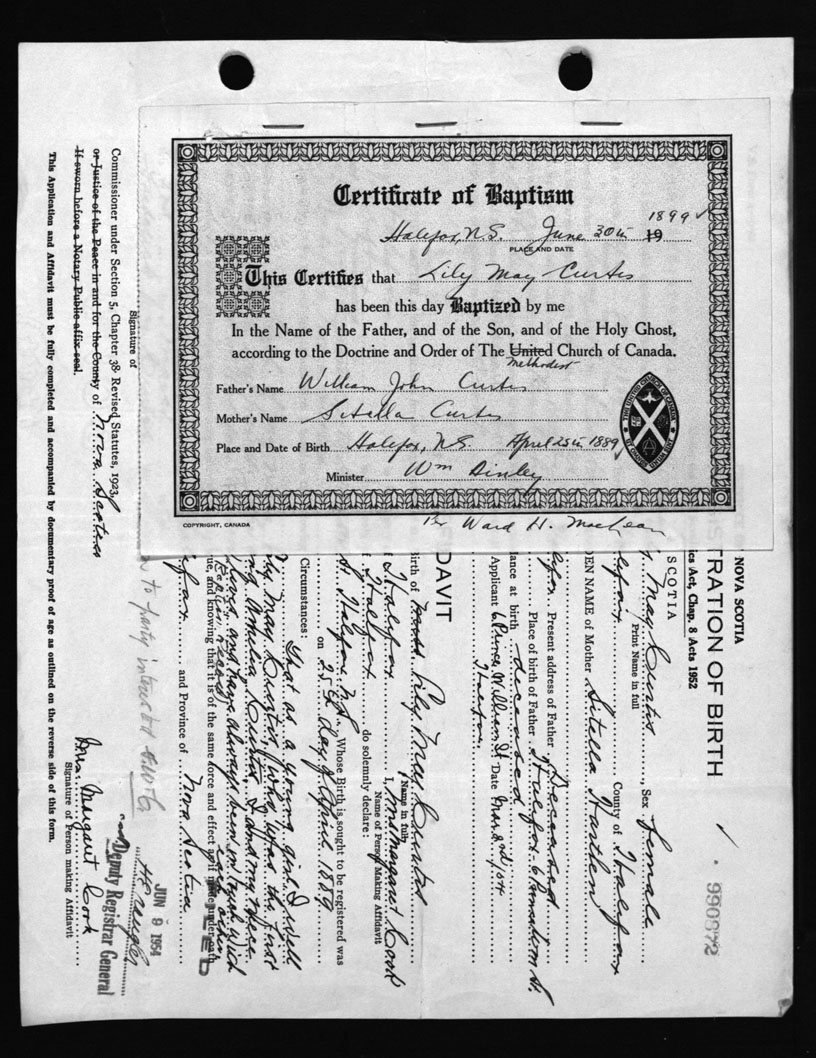 Certificate of Baptism
Halifax, N.S. June 30th 1899 19
PLACE AND DATE
This Certifies that Lily May Curtis
has been this day Baptized by me
In the Name of the Father, and of the Son, and of the Holy Ghost,
according to the Doctrine and Order of The United Church of Canada.
Methodist
Father's Name William John Curtis
Mother's Name Sitella Curtis
Place and Date of Birth Halifax, N.S. April 25th 1889
Minister Wm Dinley
COPYRIGHT, CANADA
Per Ward H. MacLean
NOVA SCOTIA
Act, Chap. 8 Acts 1952
TRATION OF BIRTH
990872
SCOTIA
May Curtis, Sex female
Print Name in full
County of Halifax
DEN NAME of Mother Sitella Hartlen
Present address of Father Deceased
Place of birth of Father Halifax
at birth deceased
Applicant 6 Prince William St Date Mar. 2nd/54
Halifax.
DAVIT
Birth of Miss Lily May Curtis
Name in full
Halifax I, Mrs Margaret Cook
Name of Person Making Affidavit
of Halifax do solemnly declare:
Halifax N.S. Whose Birth is sought to be registered was
on 25th day of April 1889
Circumstances:
That as a young girl I well
May Curtis, who was the first
Amelia Curtis. I and my
and have always been in touch with
ue, and knowing that it is of the same force and effect as if made under oath
and Province of Nova Scotia
to party interested
JUN 9 1954
Deputy Registrar General
Mrs. Margaret Cook
Signature of Person making Affidavit
Signature of
Commissioner under Section 5, Chapter 38 Revised Statutes, 1923,
or Justice of the Peace in and for the County of Nova Scotia
If sworn before a Notary Public affix seal.
This Application and Affidavit must be fully completed and accompanied by documentary proof of age as outlined on the reverse side of this form.